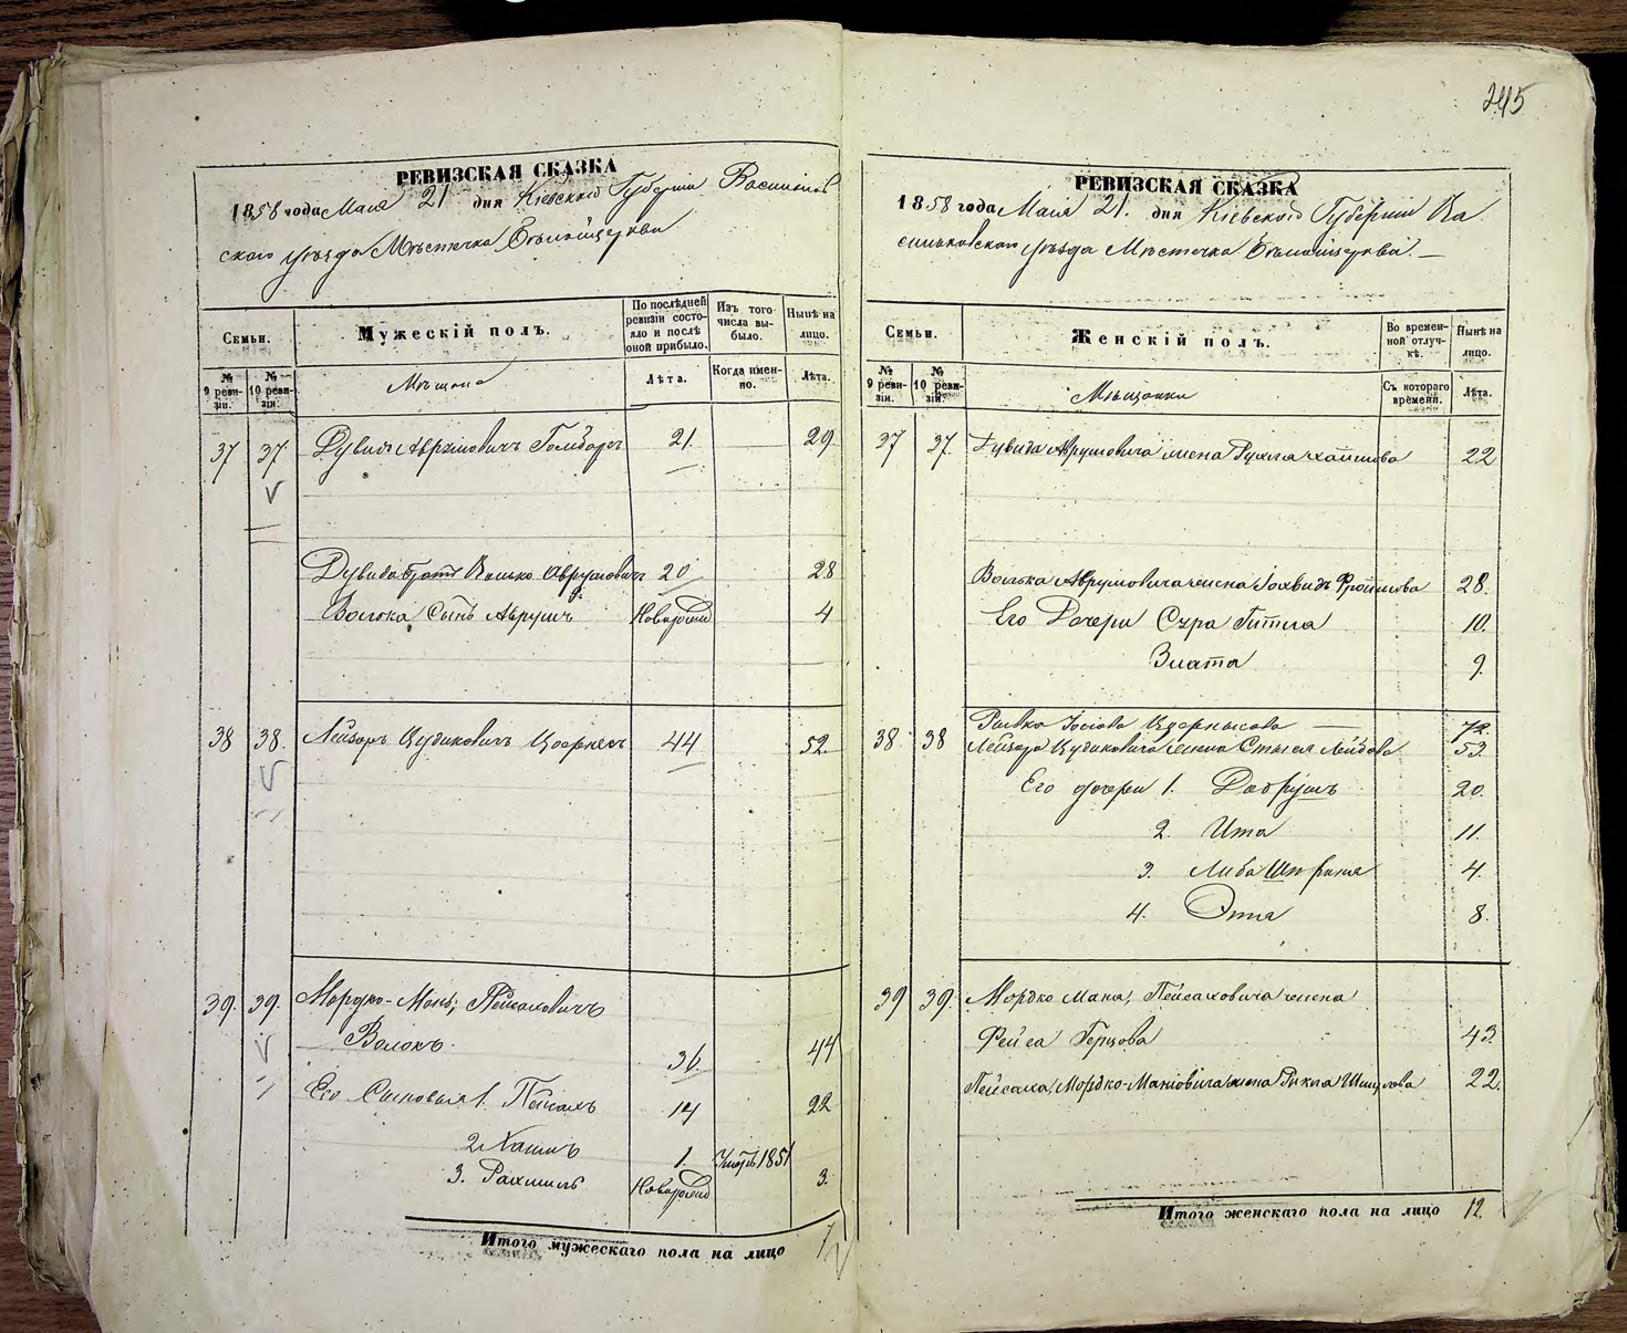 245
РЕВИЗСКАЯ СКАЗКА
1858 года Маія 21 дня Кіевской Губерніи Васильков
скаго уѣзда Мѣстечка Бѣлойцеркви
Семьи.
Мужескій полъ.
По послѣдней ревизіи состояло и послѣ оной прибыло.
Изъ того числа выбыло.
Нынѣ на лицо.
№ 9 ревизіи.
№ 10 ревизіи.
Мѣщане
Лѣта.
Когда именно.
Лѣта.
37 37 Дувидъ Аврумовичъ 21. 29
Дувида братъ Волько Аврумовичъ 20 28
Волька Сынъ Аврумъ Новорожд 4
38 38. Лейзоръ Цудиковичъ 44 52.
39. 39. Мордко-Мань, Пейсаховичъ
Волокъ. 36. 44
Его Сыновья 1. Пейсахъ 14 22
2. Хаимъ 1. Умеръ 1851
3. Рахмиль Новорожд 3.
Итого мужескаго пола на лицо 7
РЕВИЗСКАЯ СКАЗКА
1858 года Маія 21. дня Кіевской Губерніи Ва
сильковскаго уѣзда Мѣстечка Бѣлойцеркви. —
Семьи.
Женскій полъ.
Во временной отлучкѣ.
Нынѣ на лицо.
№ 9 ревизіи.
№ 10 ревизіи.
Мѣщанки
Съ котораго времени.
Лѣта.
37 37. Дувида Аврумовича жена Рухля Хаимова 22
Волька Аврумовича жена Іохвидъ Фроимова 28.
Его Дочери Сура Гитля 10.
Злата 9.
Рывка Іосіова — 72.
38. 38 Лейзора Цудиковича жена Стыся Лейбова 53.
Его дочери 1. Добрушъ 20.
2. Ита 11.
3. Либа Шпринца 4.
4. Этта 8.
39 39. Мордко Мана, Пейсаховича жена
Фейга Герцова 43.
Пейсаха, Мордко-Маніовича жена Рикля Шмулова 22.
Итого женскаго пола на лицо 12.